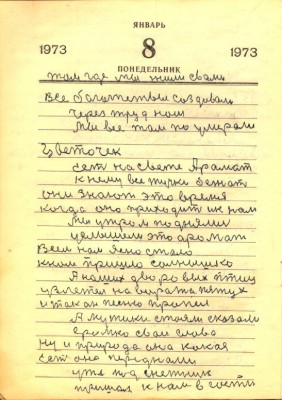 ЯНВАРЬ
1973 8 1973
ПОНЕДЕЛЬНИК
там где мы жили свами
все богатством создавали
через труд наш
Мы все там по умирали
Цветочек
сет на свете Арамат
к нему все турки бежат
они знают это время
когда оно приходит ик нам
Мы утром подняли
услышали это аромат
Всем нам ясно стало
кнам пришло солнышко
А наших дворовых птиц
узлетел на ваража петух
и так он песню пропел
А мужики стояли сказали
громко сваи слова
ну и природа она какая
сет оно перднами
ужа под светник
пришла к нам в гости